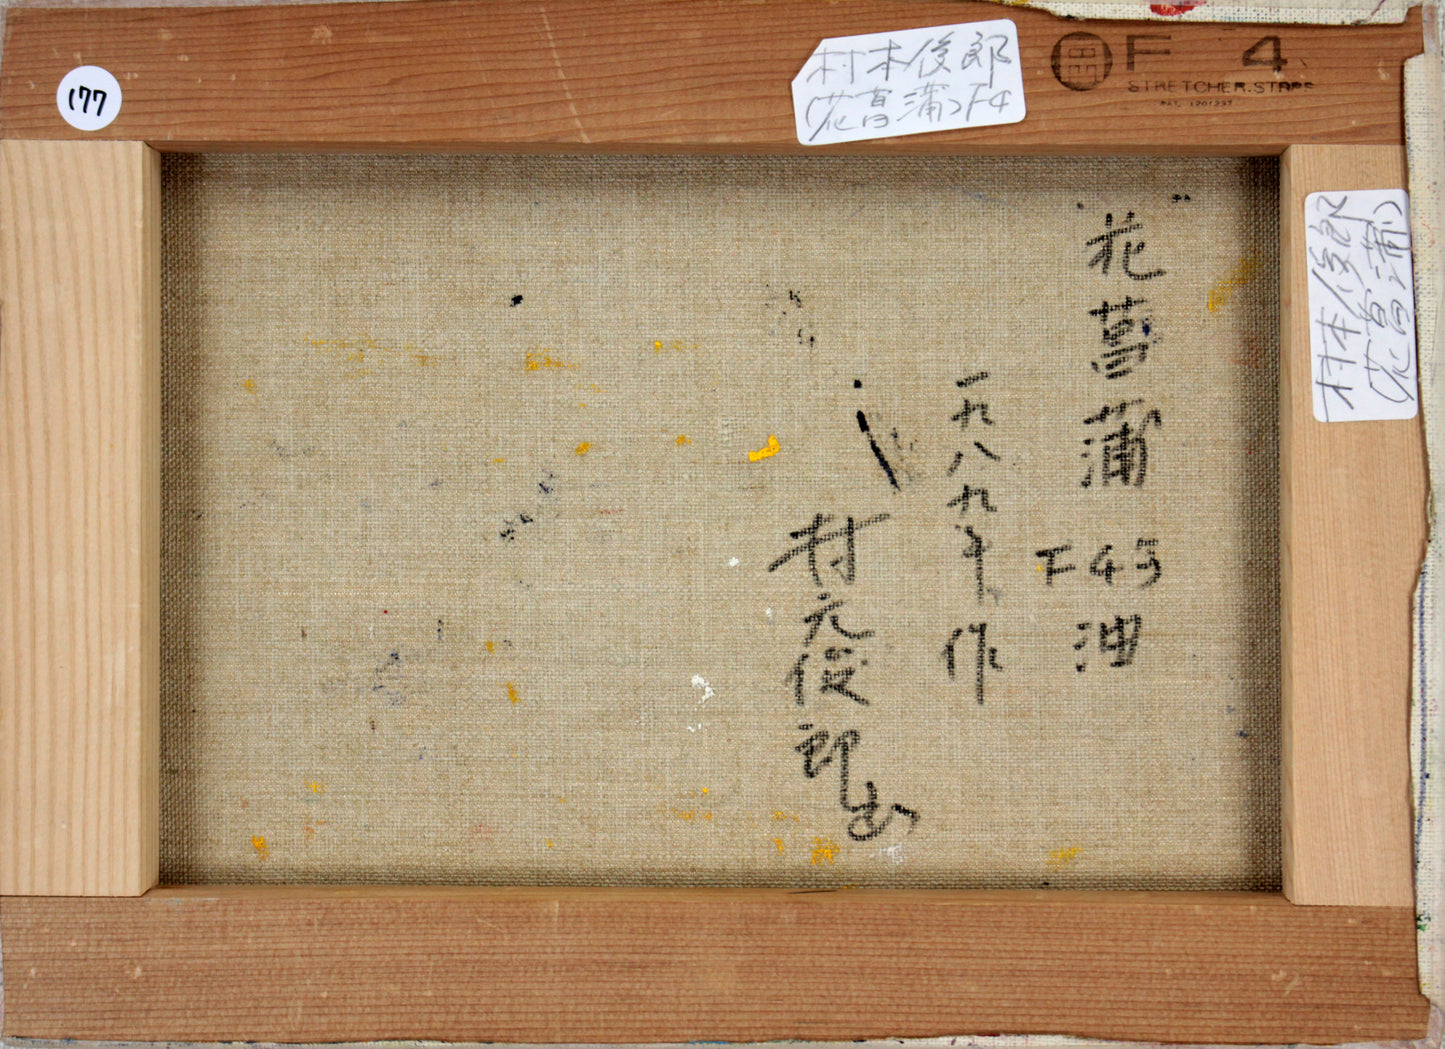 177
村本俊郎
(花菖蒲)F4
F 4
村本俊郎
(花菖蒲)
花菖蒲 F4号 油
一九八九年作
村元俊郎